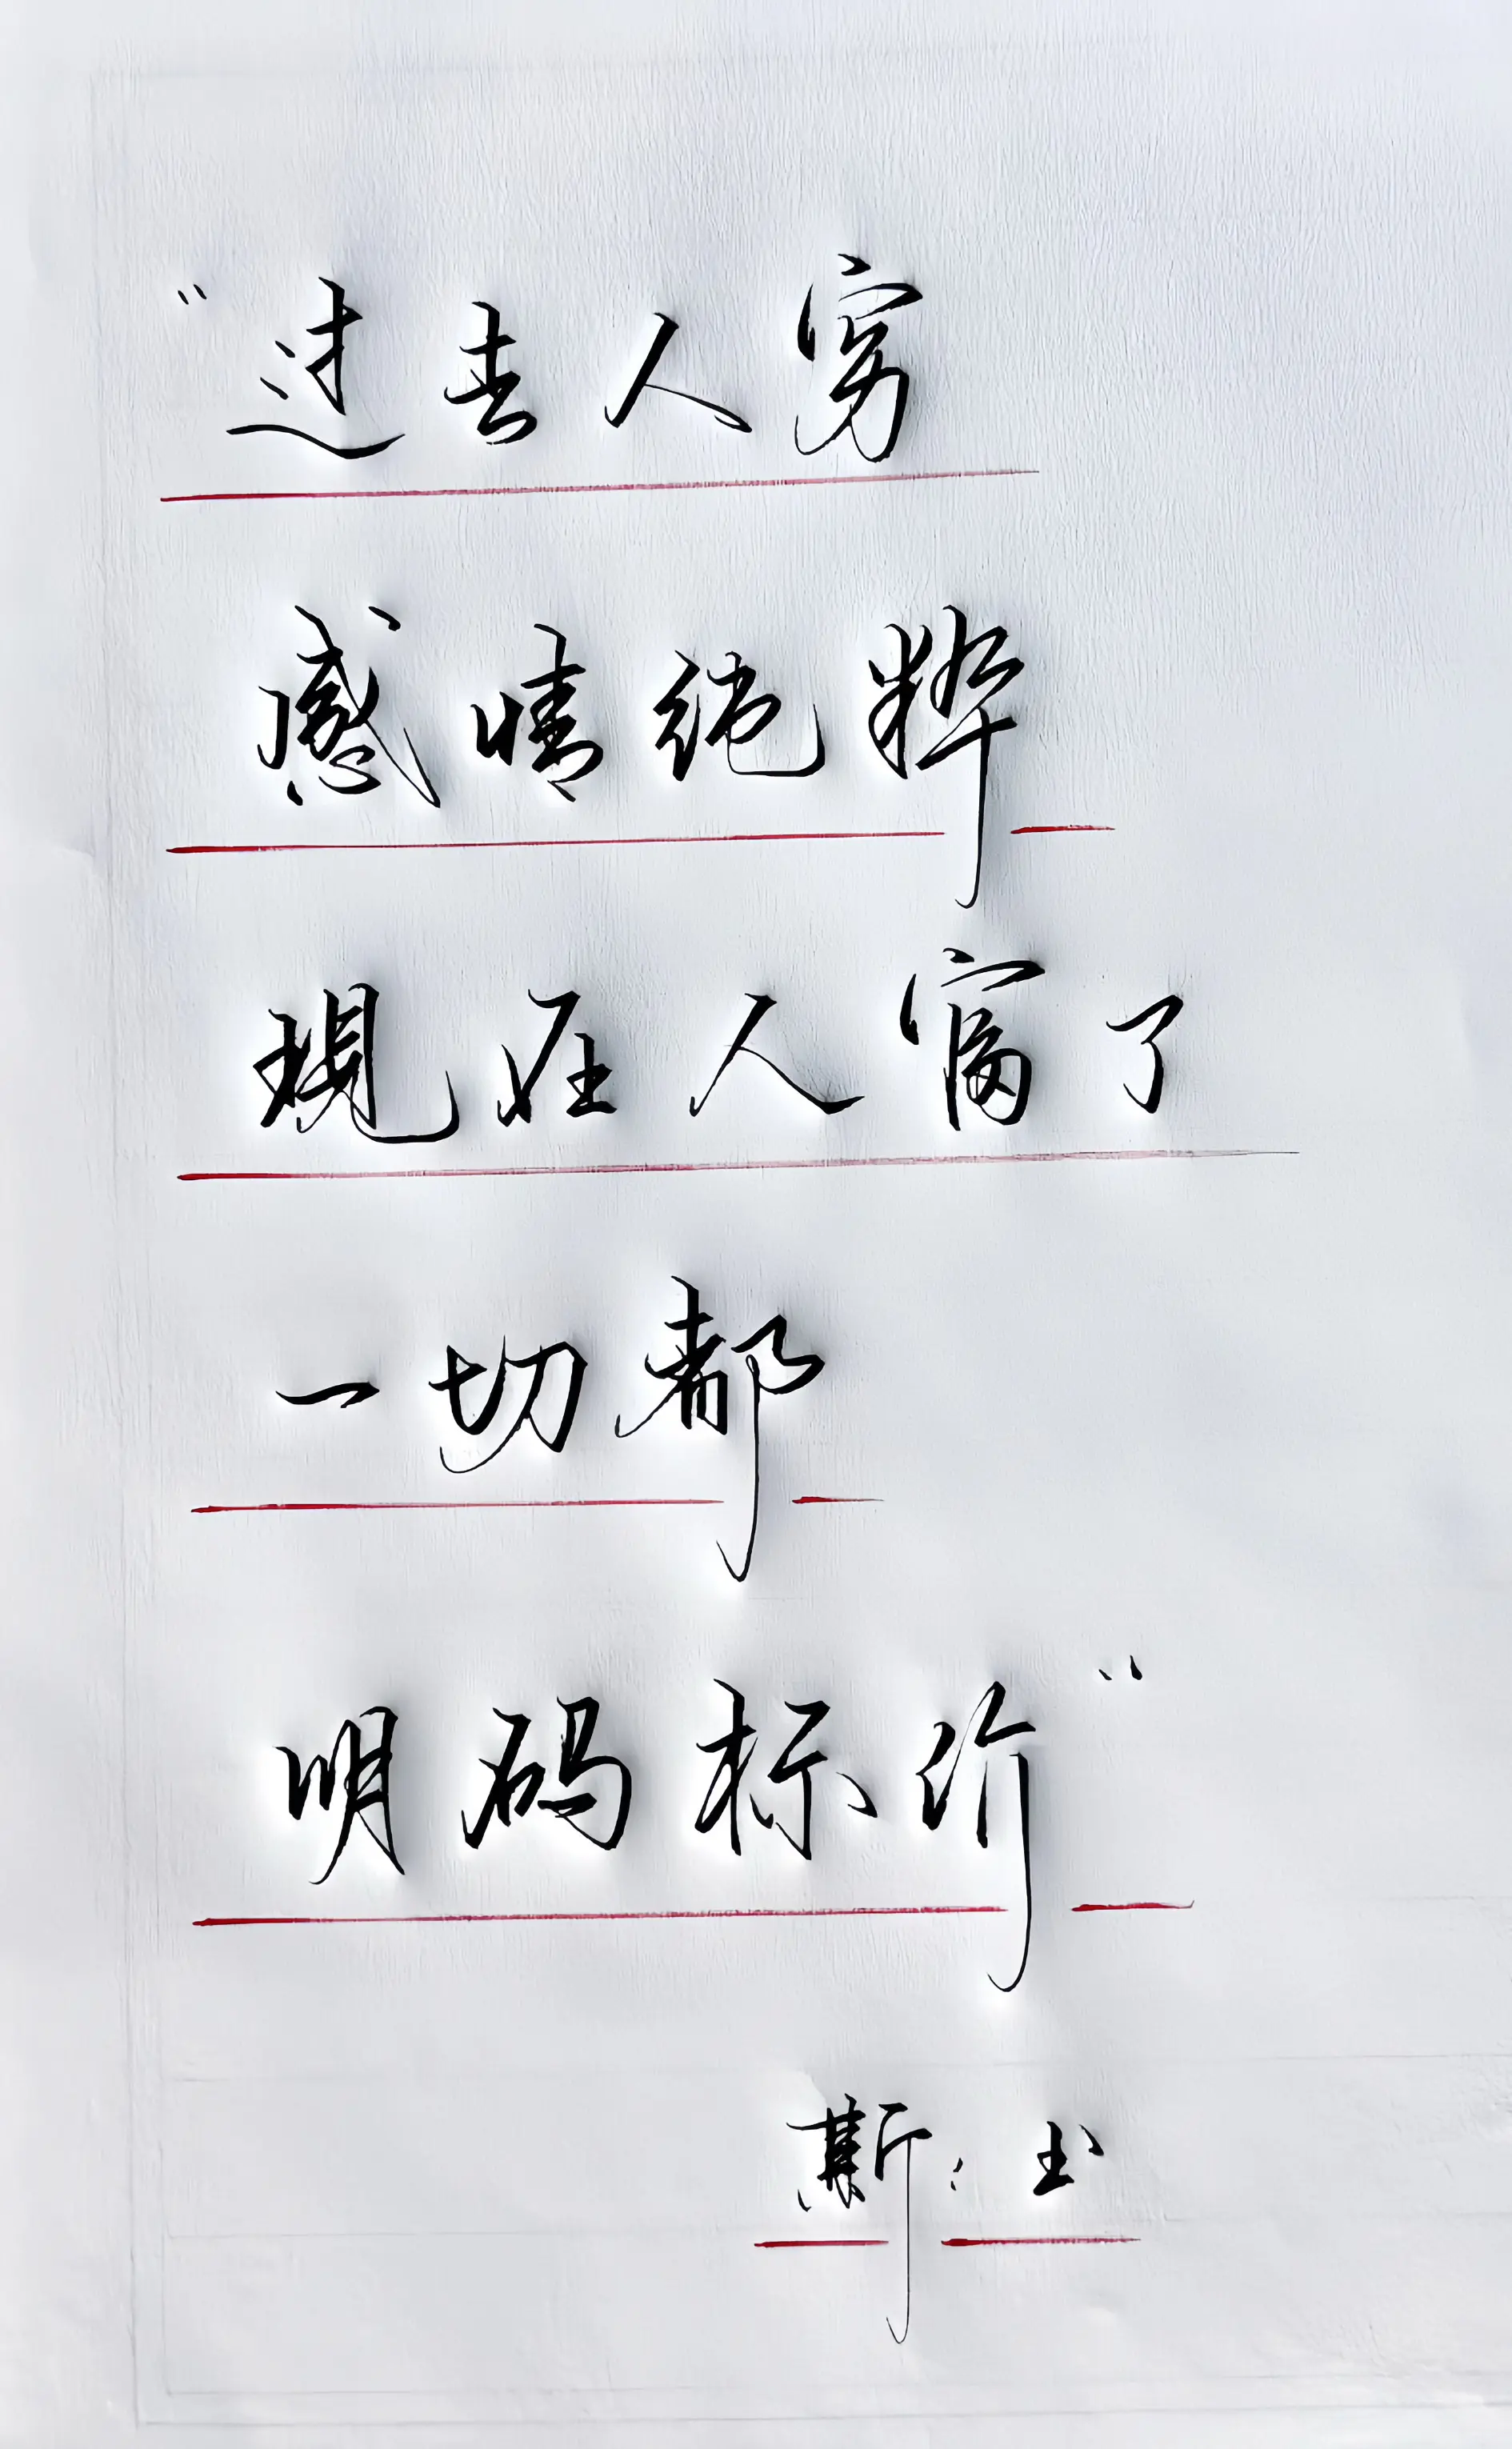 “过去人穷
感情纯粹
现在人富了
一切都
明码标价”
斯：书